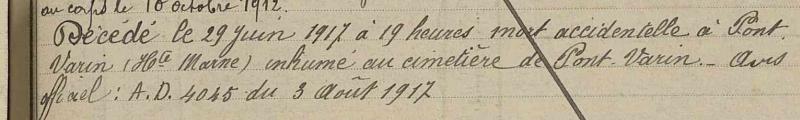 au corps le 10 octobre 1912.
Décédé le 29 Juin 1917 à 19 heures mort accidentelle à Pont
Varin (Hte Marne) inhumé au cimetière de Pont-Varin. _ Avis
officiel : A.D. 4045 du 3 Août 1917